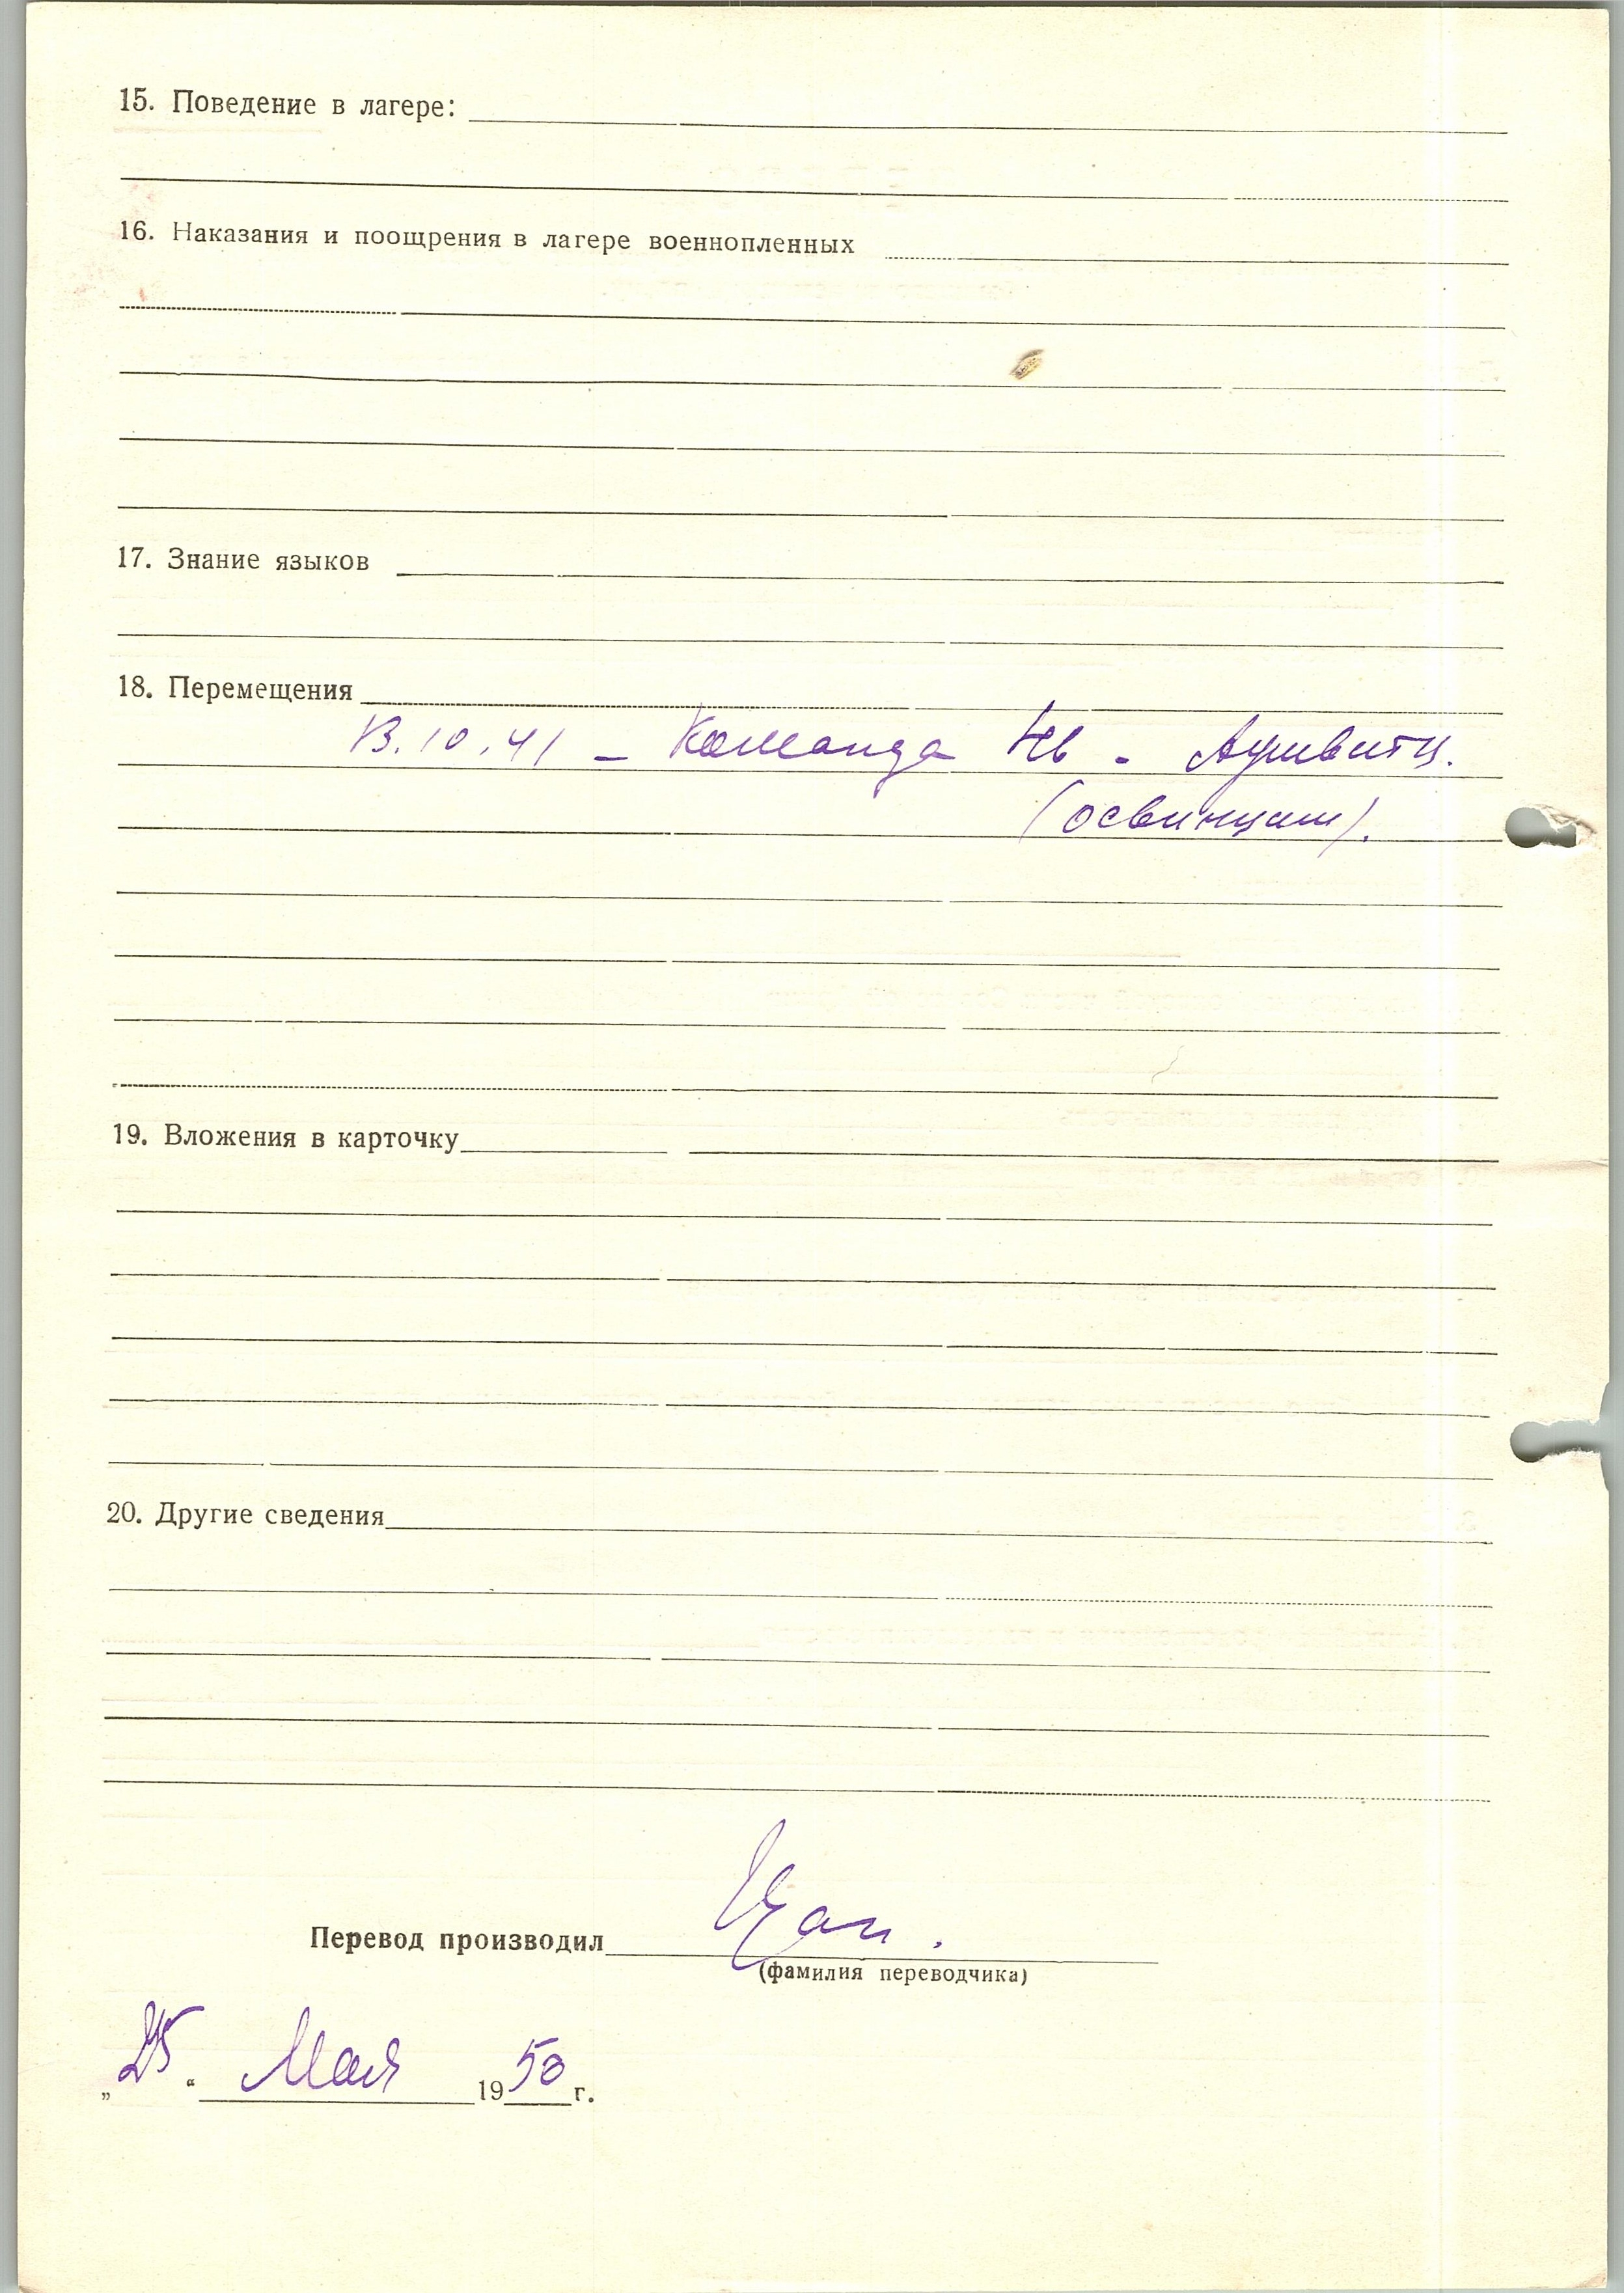 15. Поведение в лагере:
16. Наказания и поощрения в лагере военнопленных
17. Знание языков
18. Перемещения
13.10.41 – Команда - Аушвитц.
(освинцим).
19. Вложения в карточку
20. Другие сведения
Перевод производил
(фамилия переводчика)
„25“ Мая 1950 г.